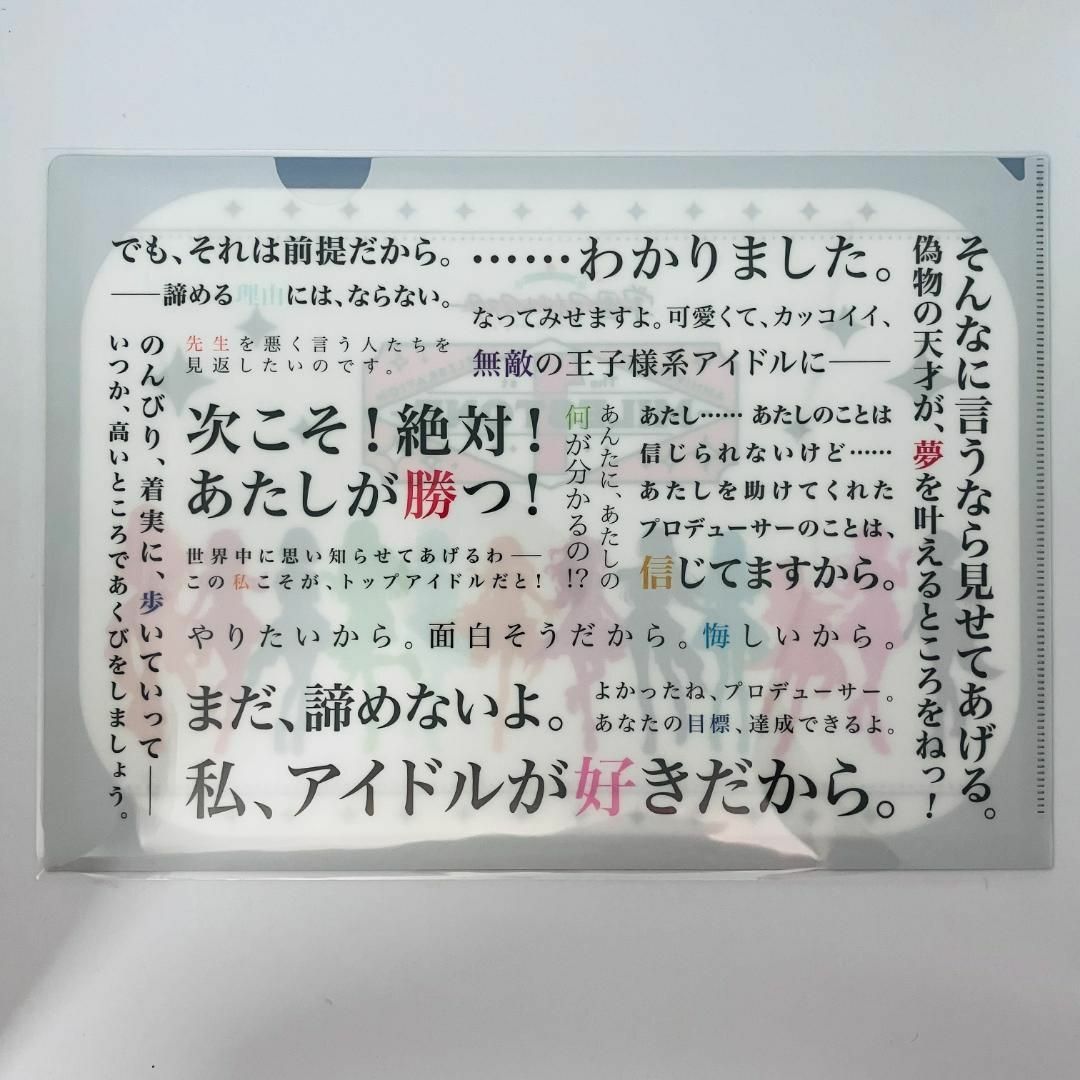 そんなに言うなら見せてあげる。
偽物の天才が、夢を叶えるところをねっ！
……わかりました。
なってみせますよ。可愛くて、カッコイイ、
無敵の王子様系アイドルに――
でも、それは前提だから。
――諦める理由には、ならない。
のんびり、着実に、歩いていって――
いつか、高いところであくびをしましょう。
先生を悪く言う人たちを
見返したいのです。
次こそ！絶対！
あたしが勝つ！
あんたに、あたしの
何が分かるの!?
あたし…… あたしのことは
信じられないけど……
あたしを助けてくれた
プロデューサーのことは、
信じてますから。
世界中に思い知らせてあげるわ――
この私こそが、トップアイドルだと！
やりたいから。面白そうだから。悔しいから。
まだ、諦めないよ。
よかったね、プロデューサー。
あなたの目標、達成できるよ。
私、アイドルが好きだから。